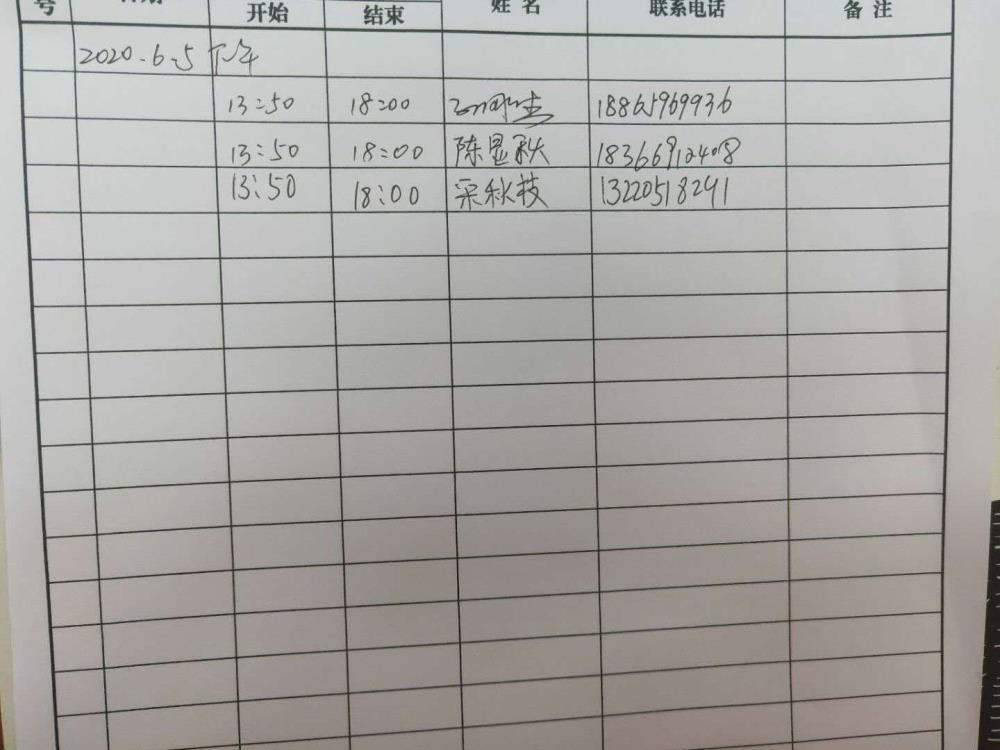 号 开始 结束 姓名 联系电话 备注
2020.6.5 下午
13:50 18:00 18865969936
13:50 18:00 陈显秋 18366912408
13:50 18:00 采秋枝 13220518291